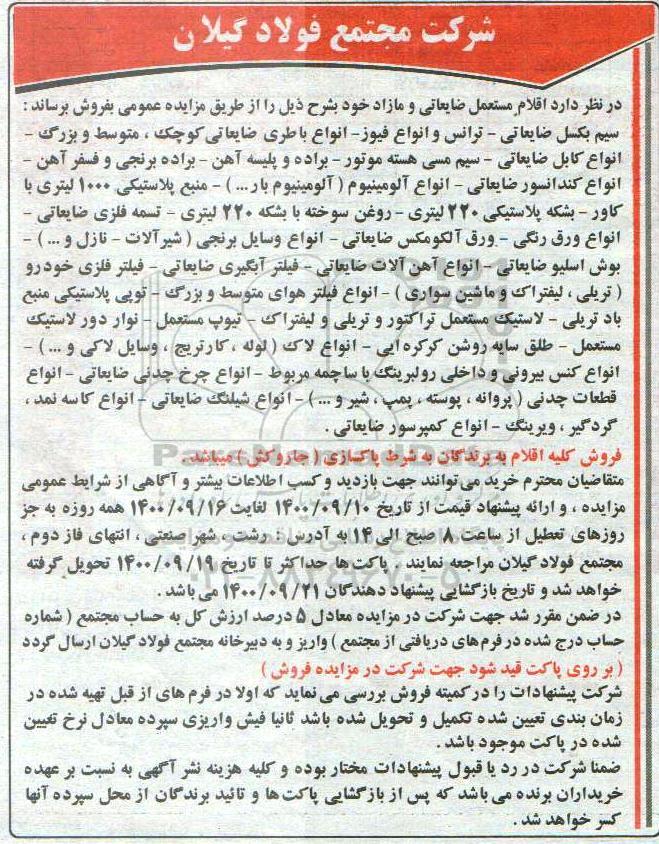 شرکت مجتمع فولاد گیلان
در نظر دارد اقلام مستعمل ضایعاتی و مازاد خود بشرح ذیل را از طریق مزایده عمومی بفروش برساند :
سیم بکسل ضایعاتی – ترانس و انواع فیوز – انواع باطری ضایعاتی کوچک ، متوسط و بزرگ –
انواع کابل ضایعاتی – سیم مسی هسته موتور – براده و پلیسه آهن – براده برنجی و فسفر آهن –
انواع کندانسور ضایعاتی – انواع آلومینیوم ( آلومینیوم بار ... ) – منبع پلاستیکی ۱۰۰۰ لیتری با
کاور – بشکه پلاستیکی ۲۲۰ لیتری – روغن سوخته با بشکه ۲۲۰ لیتری – تسمه فلزی ضایعاتی –
انواع ورق رنگی – ورق آلکومکس ضایعاتی – انواع وسایل برنجی ( شیرآلات – نازل و ... ) –
بوش اسلیو ضایعاتی – انواع آهن آلات ضایعاتی – فیلتر آبگیری ضایعاتی – فیلتر فلزی خودرو
( تریلی ، لیفتراک و ماشین سواری ) – انواع فیلتر هوای متوسط و بزرگ – توپی پلاستیکی منبع
باد تریلی – لاستیک مستعمل تراکتور و تریلی و لیفتراک – تیوپ مستعمل – نوار دور لاستیک
مستعمل – طلق سایه روشن کرکره ایی – انواع لاک ( لوله ، کارتریج ، وسایل لاکی و ... ) –
انواع کنس بیرونی و داخلی رولبرینگ با ساچمه مربوط – انواع چرخ چدنی ضایعاتی – انواع
قطعات چدنی ( پروانه ، پوسته ، پمپ ، شیر و ... ) – انواع شیلنگ ضایعاتی – انواع کاسه نمد ،
گردگیر ، ویرینگ – انواع کمپرسور ضایعاتی .
فروش کلیه اقلام به برندگان به شرط پاکسازی ( جاروکش ) میباشد .
متقاضیان محترم خرید می توانند جهت بازدید و کسب اطلاعات بیشتر و آگاهی از شرایط عمومی
مزایده ، و ارائه پیشنهاد قیمت از تاریخ ۱۴۰۰/۰۹/۱۰ لغایت ۱۴۰۰/۰۹/۱۶ همه روزه به جز
روزهای تعطیل از ساعت ۸ صبح الی ۱۴ به آدرس : رشت ، شهر صنعتی ، انتهای فاز دوم ،
مجتمع فولاد گیلان مراجعه نمایند . پاکت ها حداکثر تا تاریخ ۱۴۰۰/۰۹/۱۹ تحویل گرفته
خواهد شد و تاریخ بازگشایی پیشنهاد دهندگان ۱۴۰۰/۰۹/۲۱ می باشد .
در ضمن مقرر شد جهت شرکت در مزایده معادل ۵ درصد ارزش کل به حساب مجتمع ( شماره
حساب درج شده در فرم های دریافتی از مجتمع ) واریز و به دبیرخانه مجتمع فولاد گیلان ارسال گردد
( بر روی پاکت قید شود جهت شرکت در مزایده فروش )
شرکت پیشنهادات را در کمیته فروش بررسی می نماید که اولا در فرم های از قبل تهیه شده در
زمان بندی تعیین شده تکمیل و تحویل شده باشد ثانیا فیش واریزی سپرده معادل نرخ تعیین
شده در پاکت موجود باشد .
ضمنا شرکت در رد یا قبول پیشنهادات مختار بوده و کلیه هزینه نشر آگهی به نسبت بر عهده
خریداران برنده می باشد که پس از بازگشایی پاکت ها و تائید برندگان از محل سپرده آنها
کسر خواهد شد .